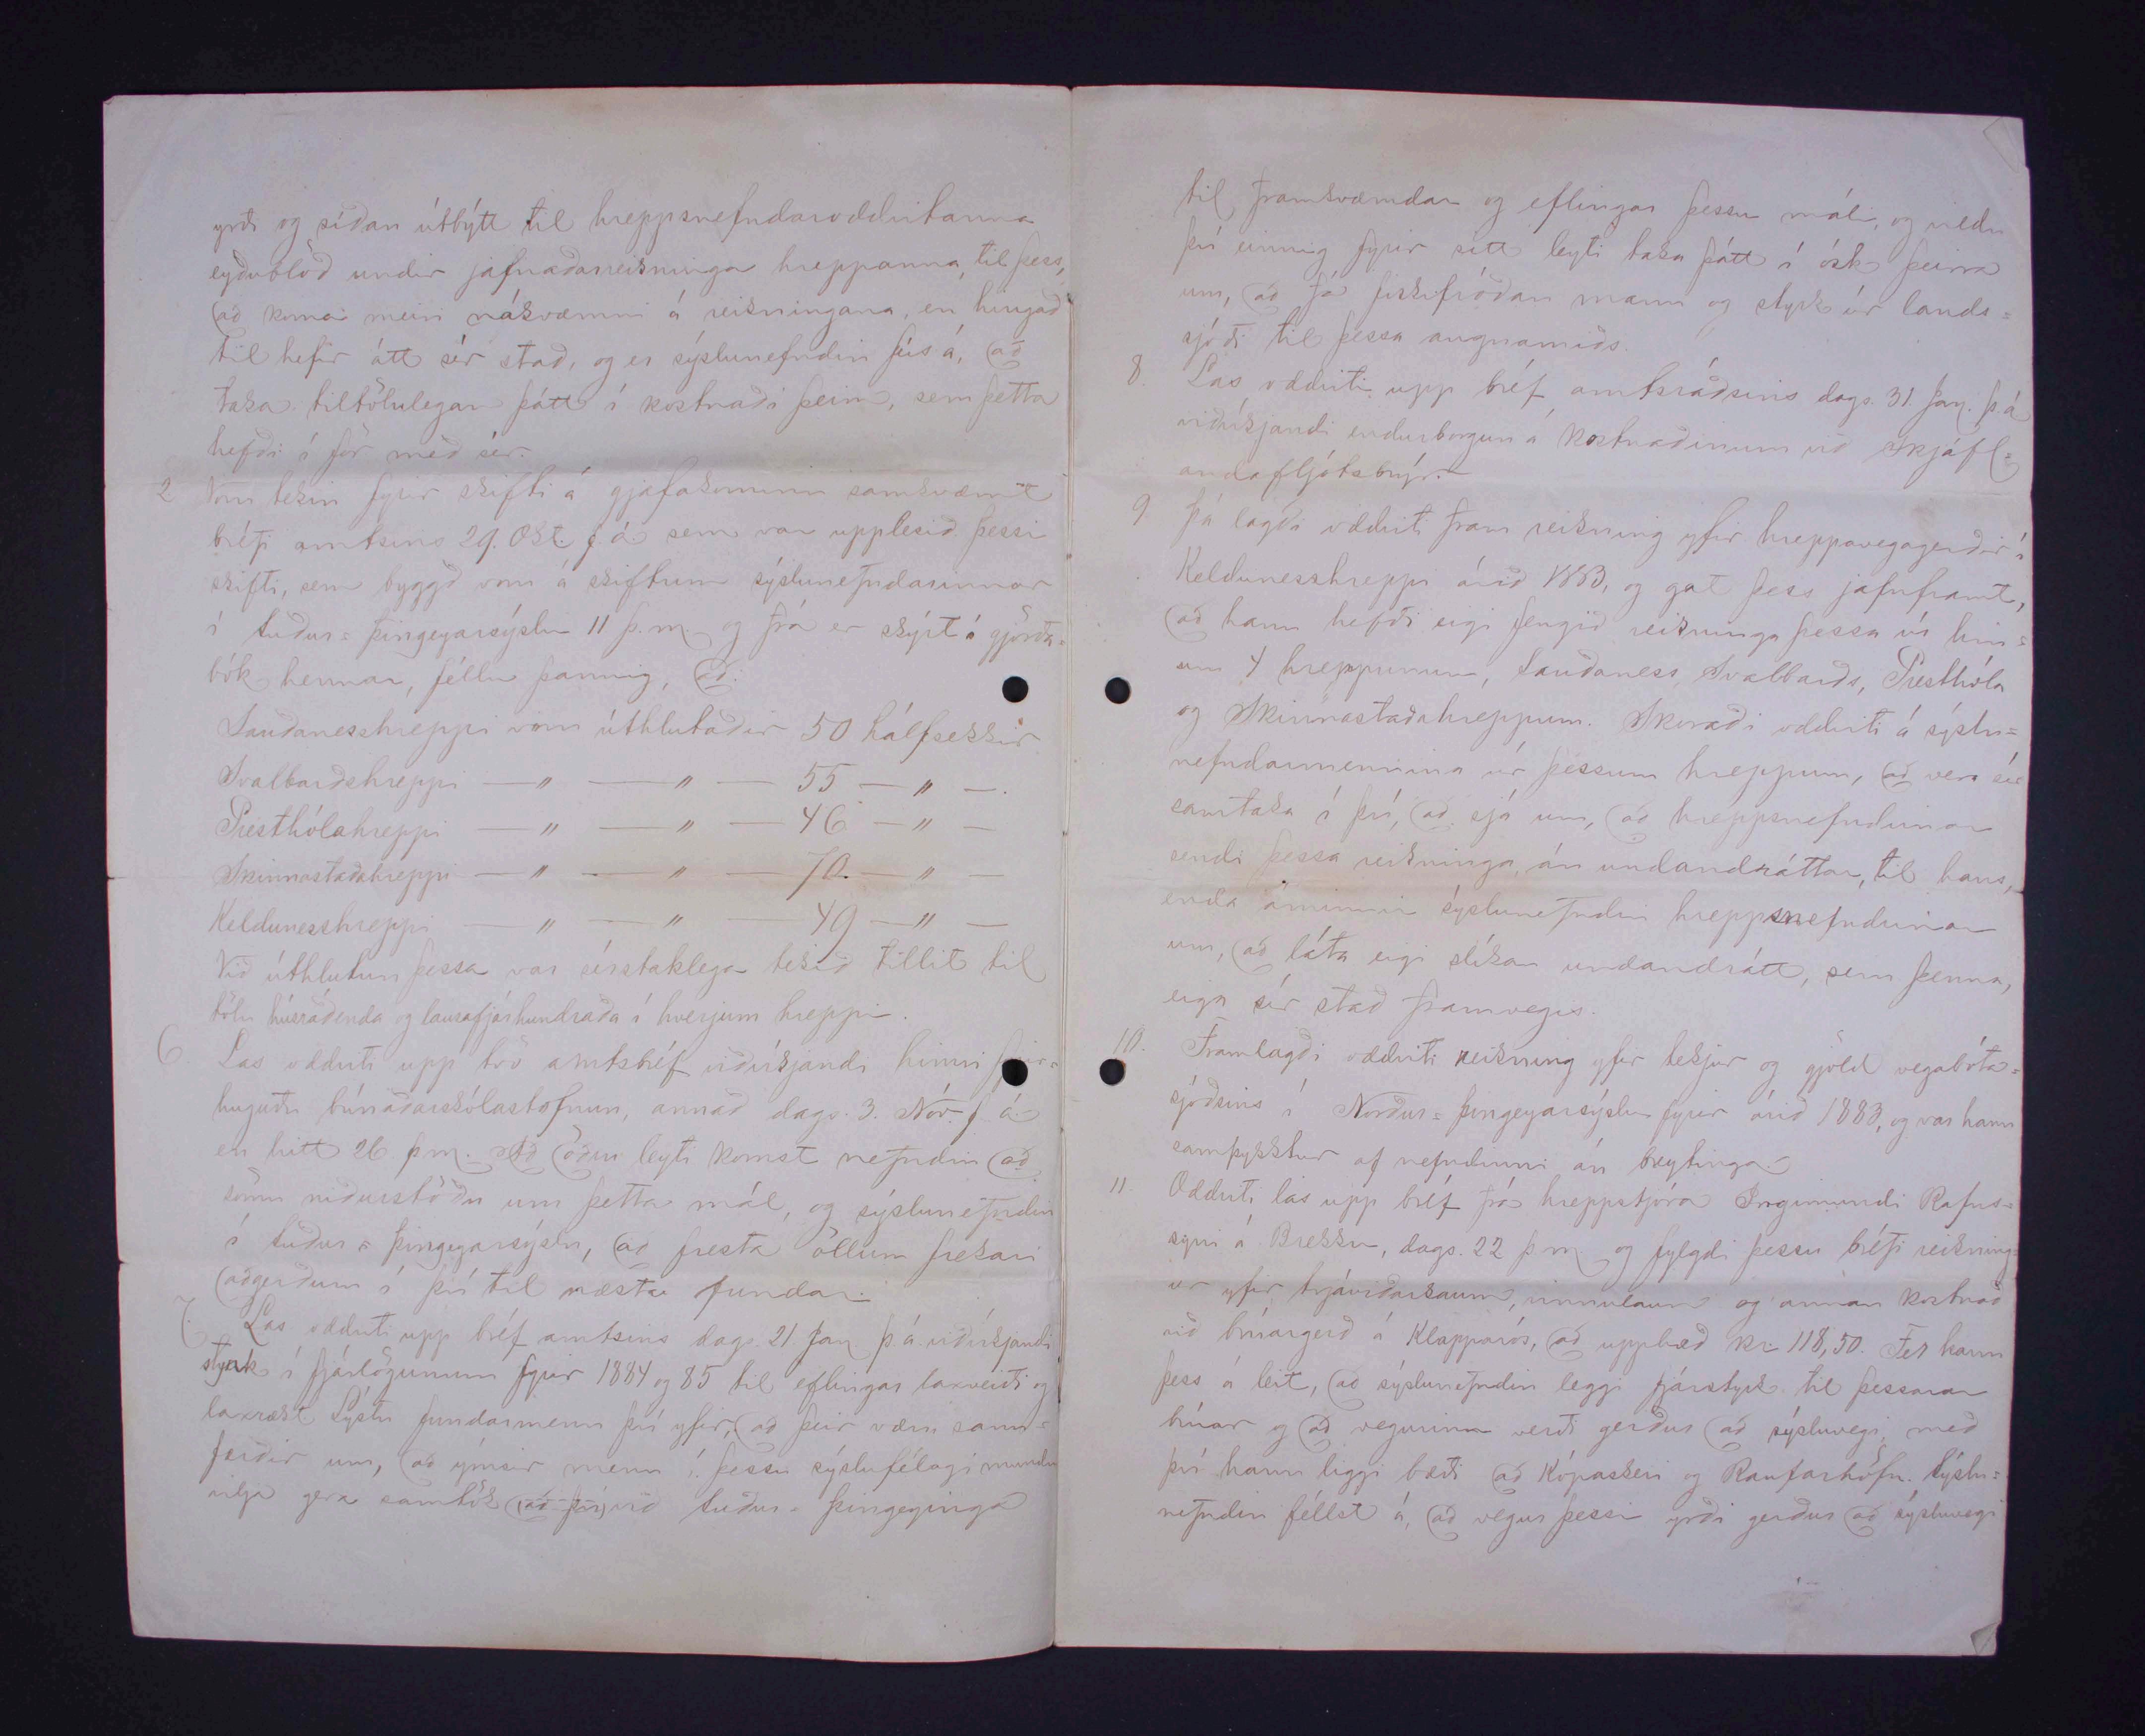 yrði og síðan útbýtt til hreppsnefndaroddvitanna
eyðublöð undir jafnaðarreikninga hreppanna, til þess,
að koma meiri nákvæmni á reikningana, en hingað
til hefir átt sér stað, og er sýslunefndin fús á, að
taka tiltölulegan þátt í kostnaði þeim, sem þetta
hefði í för með sér.
2 Voru tekin fyrir skifti á gjafakorninu samkvæmt
bréfi amtsins 29. Okt. f. á. sem var upplesið. Þessi
skifti, sem byggð voru á skiftum sýslunefndarinnar
í Suður=Þingeyarsýslu 11 þ. m. og frá er skýrt í gjörða=
bók hennar, féllu þannig, að:
Sauðanesshreppi voru úthlutaðir 50 hálfsekkir
Svalbarðshreppi — „ — „ — 55 — „ —.
Presthólahreppi — „ — „ — 46 — „ —
Skinnastaðahreppi — „ — „ — 70 — „ —
Keldunesshreppi — „ — „ — 49 — „ —
Við úthlutun þessa var sérstaklega tekið tillit til
tölu húsráðenda og lausafjárhundraða í hverjum hreppi.
6 Las oddviti upp tvö amtsbréf viðvíkjandi hinni fyrir=
huguðu búnaðarskólastofnun, annað dags. 3. Nóv. f. á.
en hitt 26 þ. m. Að öðru leyti komst nefndin að
sömu niðurstöðu um þetta mál, og sýslunefndin
í Suður=Þingeyarsýslu, að fresta öllum frekari
aðgerðum í því til næsta fundar.
7. Las oddviti upp bréf amtsins dags. 21 Jan. þ. á. viðvíkjandi
styrk í fjárlögunum fyrir 1884 og 85 til eflingar laxveiði og
laxrækt. Lýstu fundarmenn því yfir, að þeir væru sann=
færðir um, að ýmsir menn í þessu sýslufélagi mundu
vilja gera samtök að því, við Suður=Þingeyinga
til framkvæmdar og eflingar þessu máli, og
því einnig fyrir sitt leyti taka þátt í ósk þeirra
um, að fá fiskifróðan mann og styrk úr lands=
sjóði til þessa augnamiðs.
8. Las oddviti upp bréf amtsráðsins dags. 31. Jan. þ. á
viðvíkjandi endurborgun á kostnaðinum við Skjálf=
andafljótsbrýr.
9 Þá lagði oddviti fram reikning yfir hreppavegagerðir í
Keldunesshreppi árið 1883, og gat þess jafnframt,
að hann hefði eigi fengið reikninga þessa úr hin=
um 4 hreppunum, Sauðaness, Svalbarðs, Presthóla
og Skinnastaðahreppum. Skoraði oddviti á sýslu=
nefndarmennina úr þessum hreppum, að vera sér
samtaka í því, að sjá um, að hreppsnefndirnar
sendi þessa reikninga, án undandráttar, til hans,
enda áminnir sýslunefndin hreppsnefndirnar
um, að láta eigi slíkan undandrátt, sem þenna,
eiga sér stað framvegis.
10. Framlagði oddviti reikning yfir tekjur og gjöld vegabóta=
sjóðsins í Norður=Þingeyarsýslu fyrir árið 1883, og var hann
samþykktur af nefndinni án breytinga.
11. Oddviti las upp bréf frá hreppstjóra Ingimundi Rafns=
syni á Brekku, dags. 22 þ. m. og fylgdi þessu bréfi reikning=
ur yfir trjáviðarkaup, vinnulaun og annan kostnað
við brúargerð á Klapparós, að upphæð kr. 118,50. Fer hann
þess á leit, að sýslunefndin leggi fjárstyrk til þessarar
brúar og að vegurinn verði gerður að sýsluvegi, með
því hann liggi bæði að Kópaskeri og Raufarhöfn. Sýslu=
nefndin féllst á, að vegur þessi yrði gerður að sýsluvegi